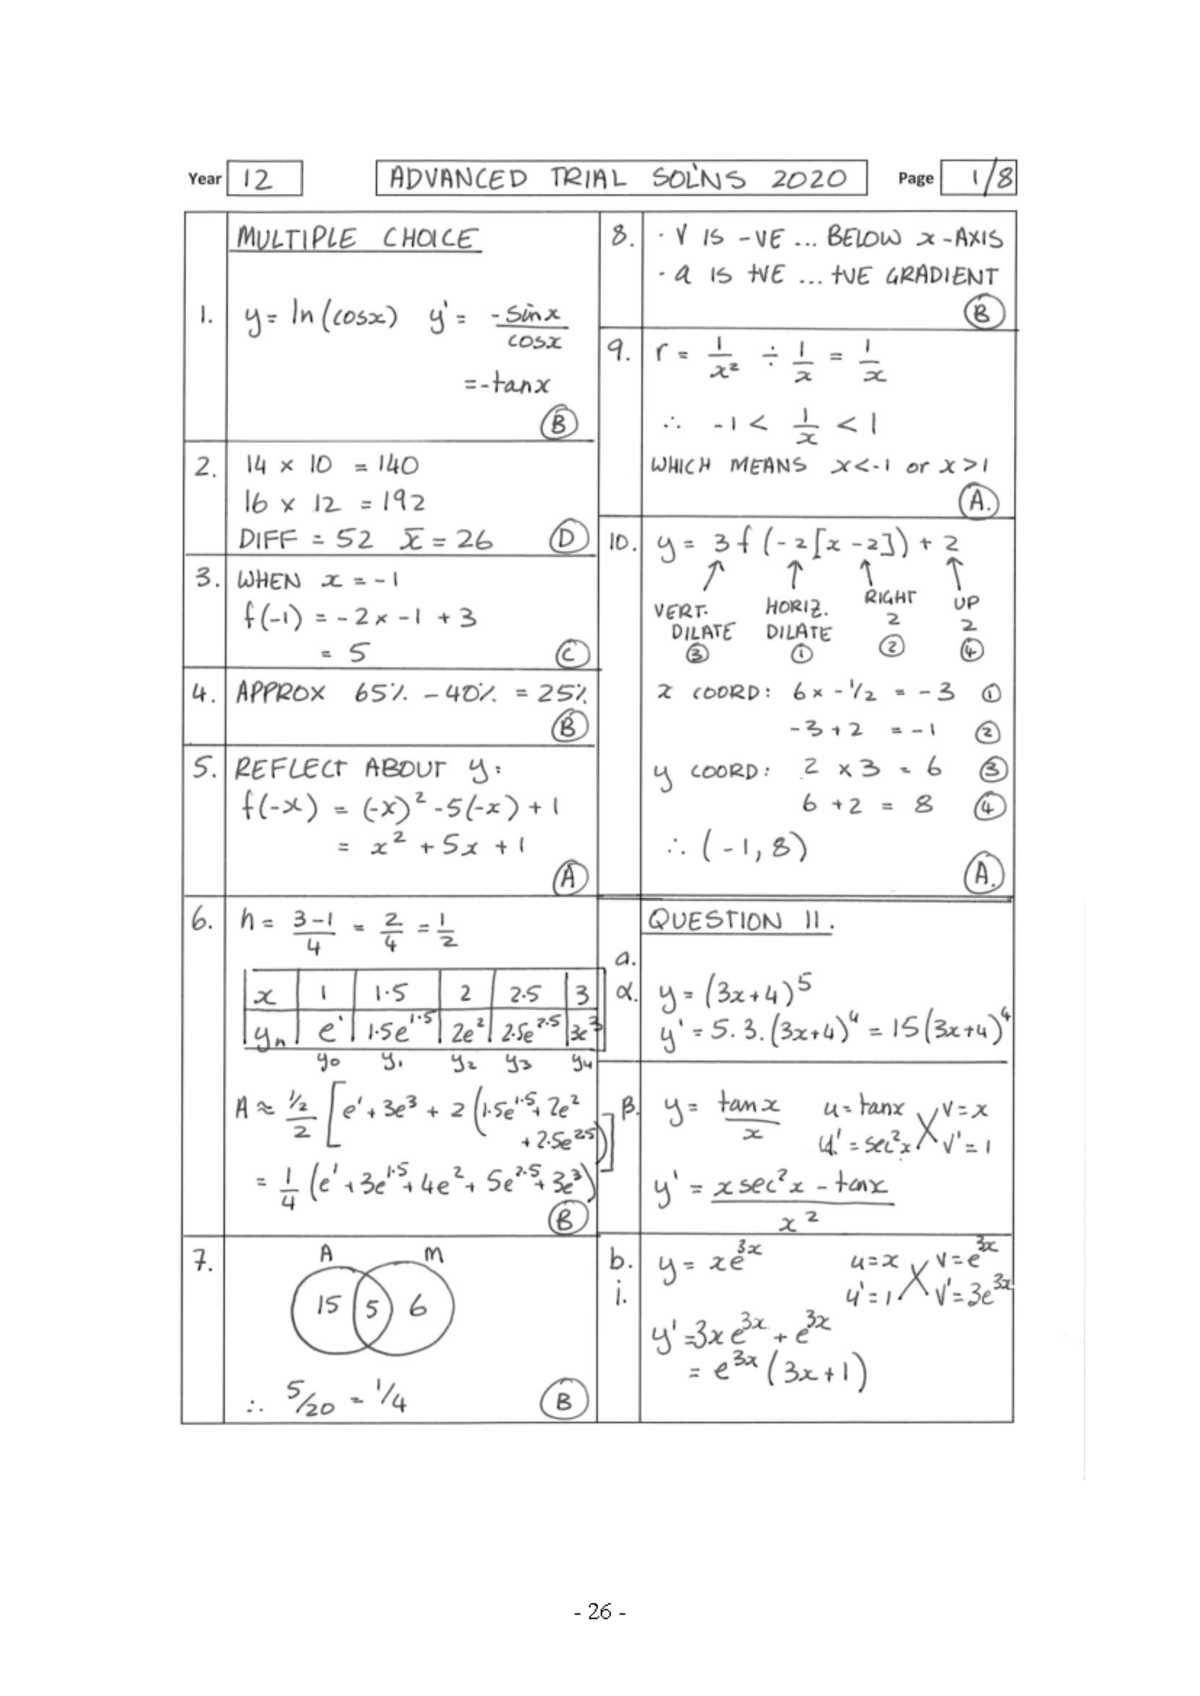 Year 12 ADVANCED TRIAL SOL'NS 2020 Page 1/8
MULTIPLE CHOICE
1. y = ln(cosx) y' = -sinx/cosx
= -tanx
B
2. 14 × 10 = 140
16 × 12 = 192
DIFF = 52 x̄ = 26 D
3. WHEN x = -1
f(-1) = -2 × -1 + 3
= 5 C
4. APPROX 65% - 40% = 25%
B
5. REFLECT ABOUT y:
f(-x) = (-x)² - 5(-x) + 1
= x² + 5x + 1
A
6. h = (3-1)/4 = 2/4 = 1/2
x 1 1·5 2 2.5 3
yn e¹ 1·5e^1·5 2e² 2·5e^2·5 3e³
y₀ y₁ y₂ y₃ y₄
A ≈ (1/2)/2 [e¹ + 3e³ + 2(1·5e^1·5 + 2e²
+ 2·5e^2·5)]
= 1/4 (e¹ + 3e^1·5 + 4e² + 5e^2·5 + 3e³)
B
7. A M
15 5 6
∴ 5/20 = 1/4 B
8. · V IS -VE ... BELOW x-AXIS
· a IS +VE ... +VE GRADIENT
B
9. r = 1/x² ÷ 1/x = 1/x
∴ -1 < 1/x < 1
WHICH MEANS x<-1 or x>1
A.
10. y = 3f(-2[x-2]) + 2
VERT. HORIZ. RIGHT UP
DILATE DILATE 2 2
③ ① ② ④
x COORD: 6 × -1/2 = -3 ①
-3 + 2 = -1 ②
y COORD: 2 × 3 = 6 ③
6 + 2 = 8 ④
∴ (-1, 8)
A.
QUESTION 11.
a.
α. y = (3x+4)⁵
y' = 5.3.(3x+4)⁴ = 15(3x+4)⁴
β. y = tanx/x u = tanx v = x
u' = sec²x v' = 1
y' = (x sec²x - tanx)/x²
b. y = xe^3x u = x v = e^3x
i. u' = 1 v' = 3e^3x
y' = 3xe^3x + e^3x
= e^3x (3x+1)
- 26 -